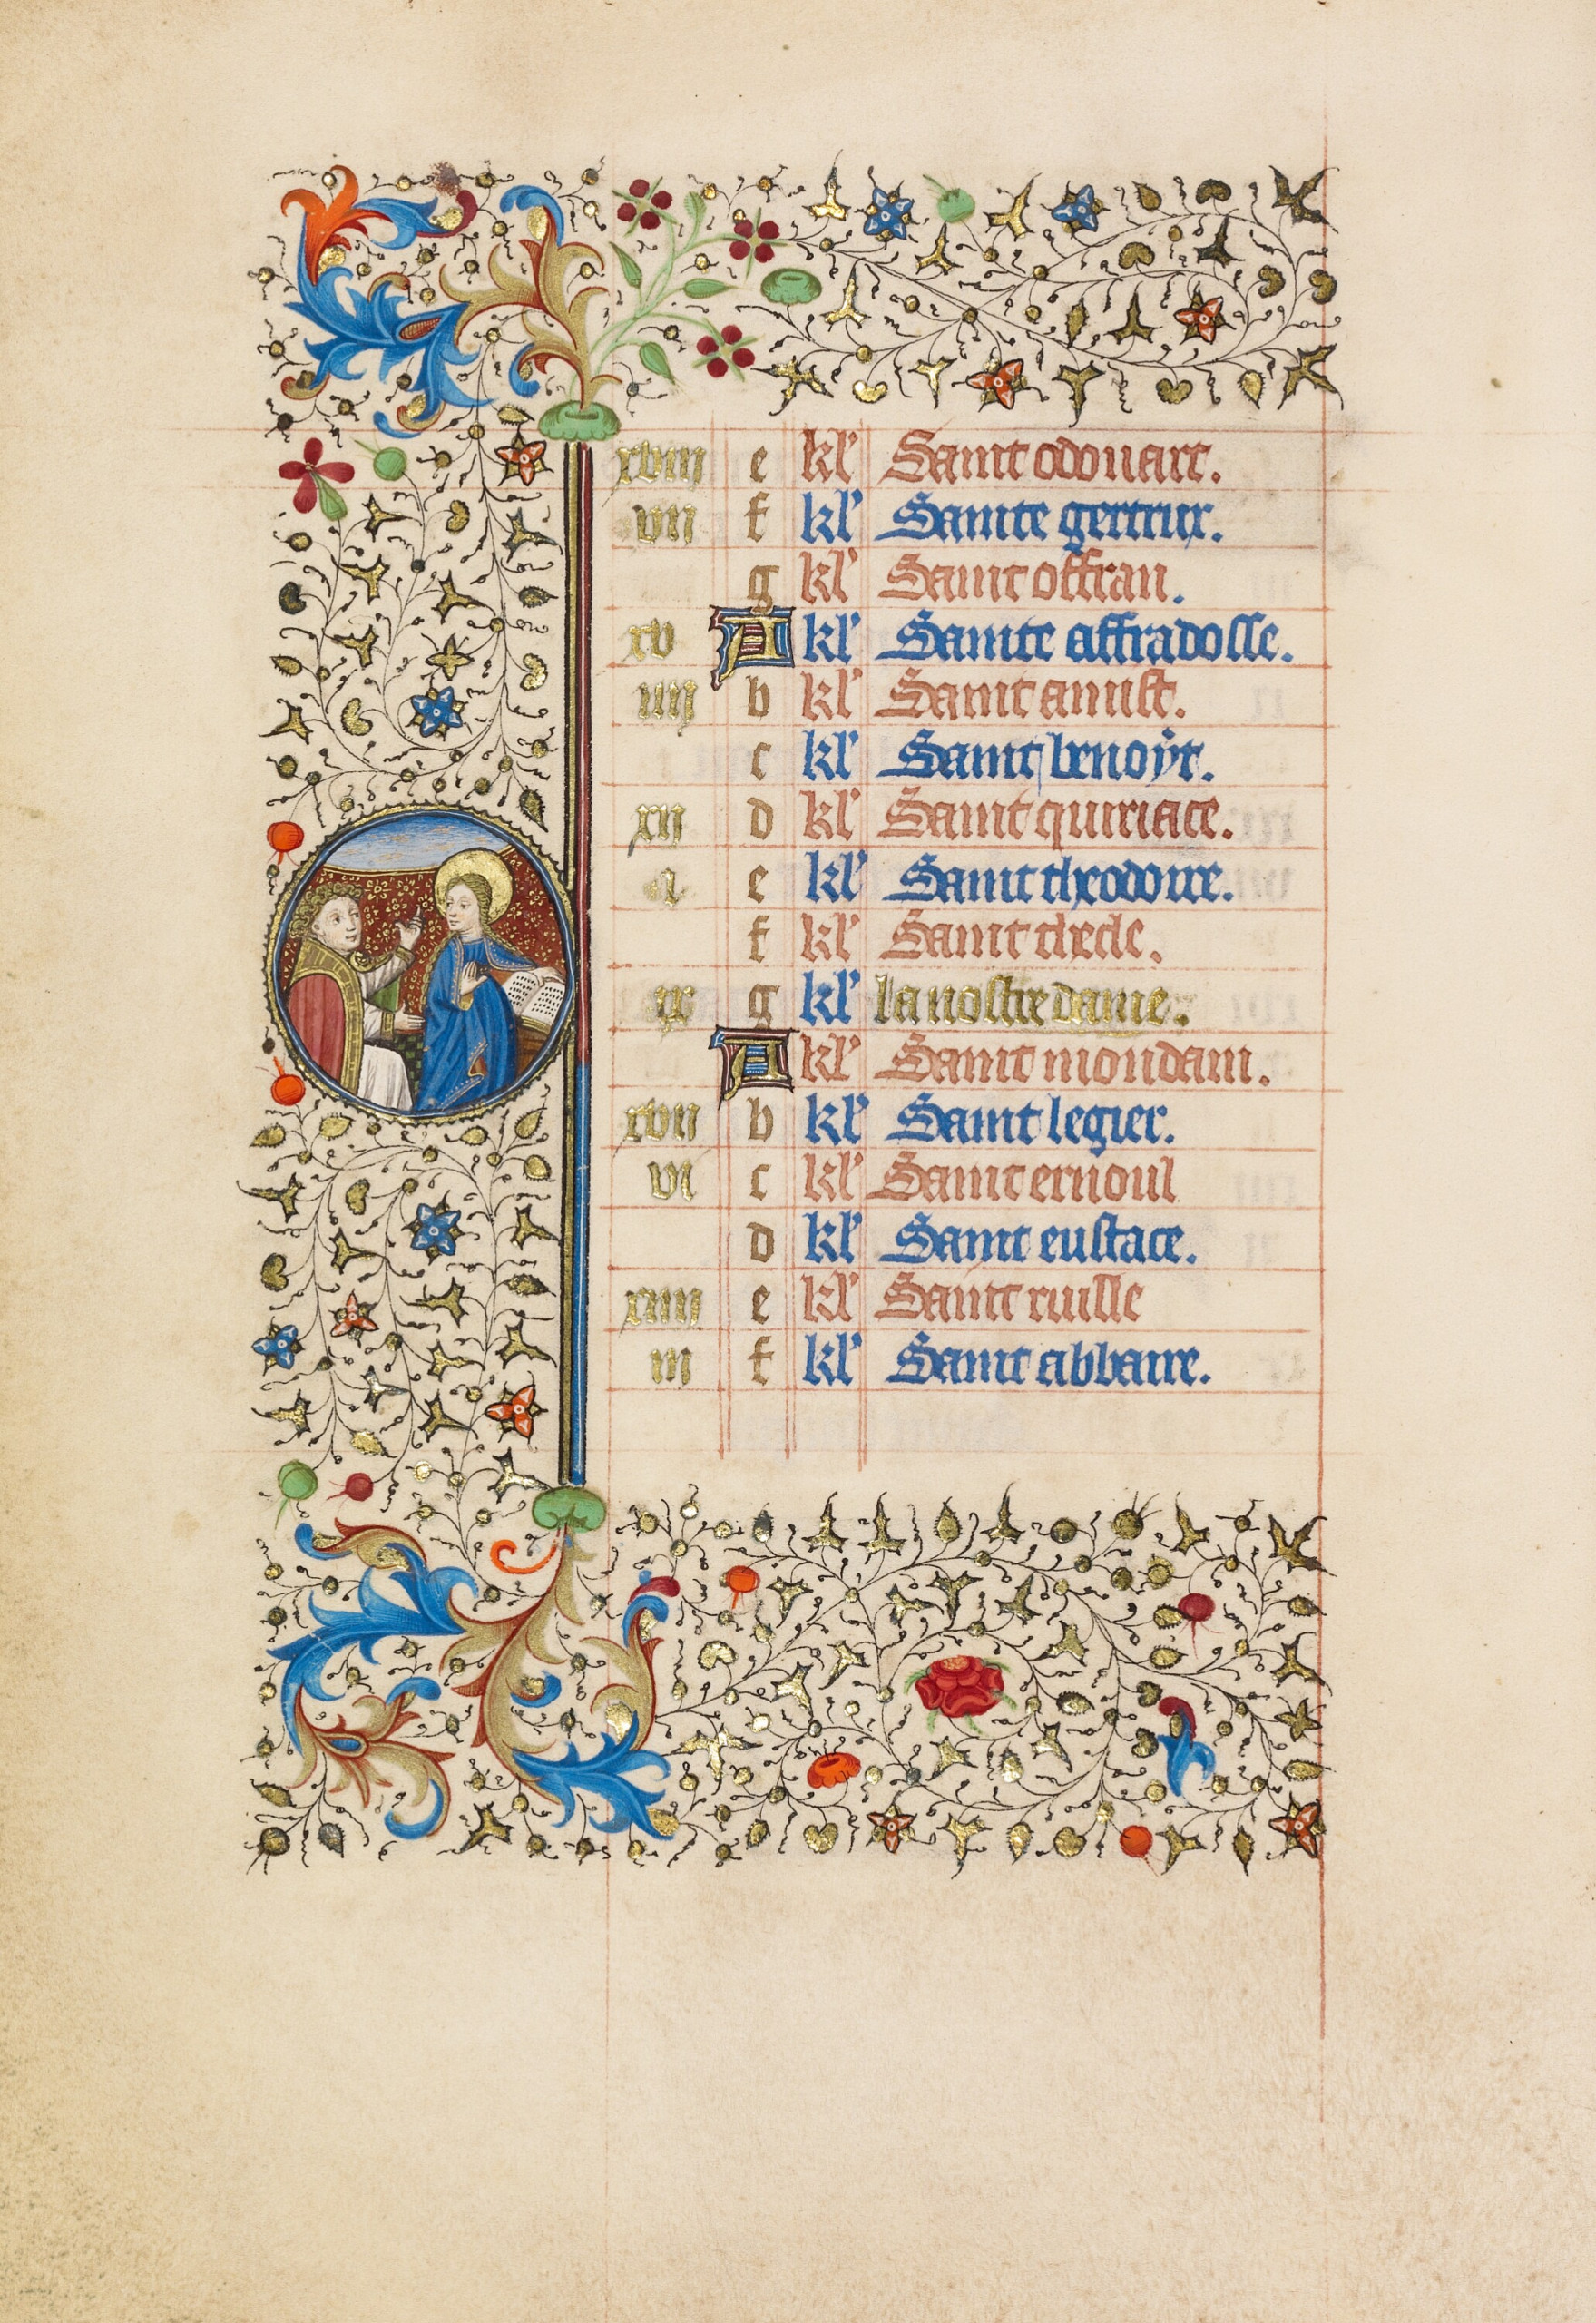 xviii e kl' Saint odouart.
vii f kl' Sainte gertrux.
g kl' Saint offran.
xv A kl' Sainte affradosse.
iiii b kl' Saint anuist.
c kl' Saint benoÿt.
xii d kl' Saint quiriace.
i e kl' Saint theodorre.
f kl' Saint clede.
ix g kl' la nostre dame.
A kl' Saint mondain.
xvii b kl' Saint legier.
vi c kl' Saint ernoul
d kl' Saint eustace.
xiiii e kl' Saint ruille
iii f kl' Saint abbaire.